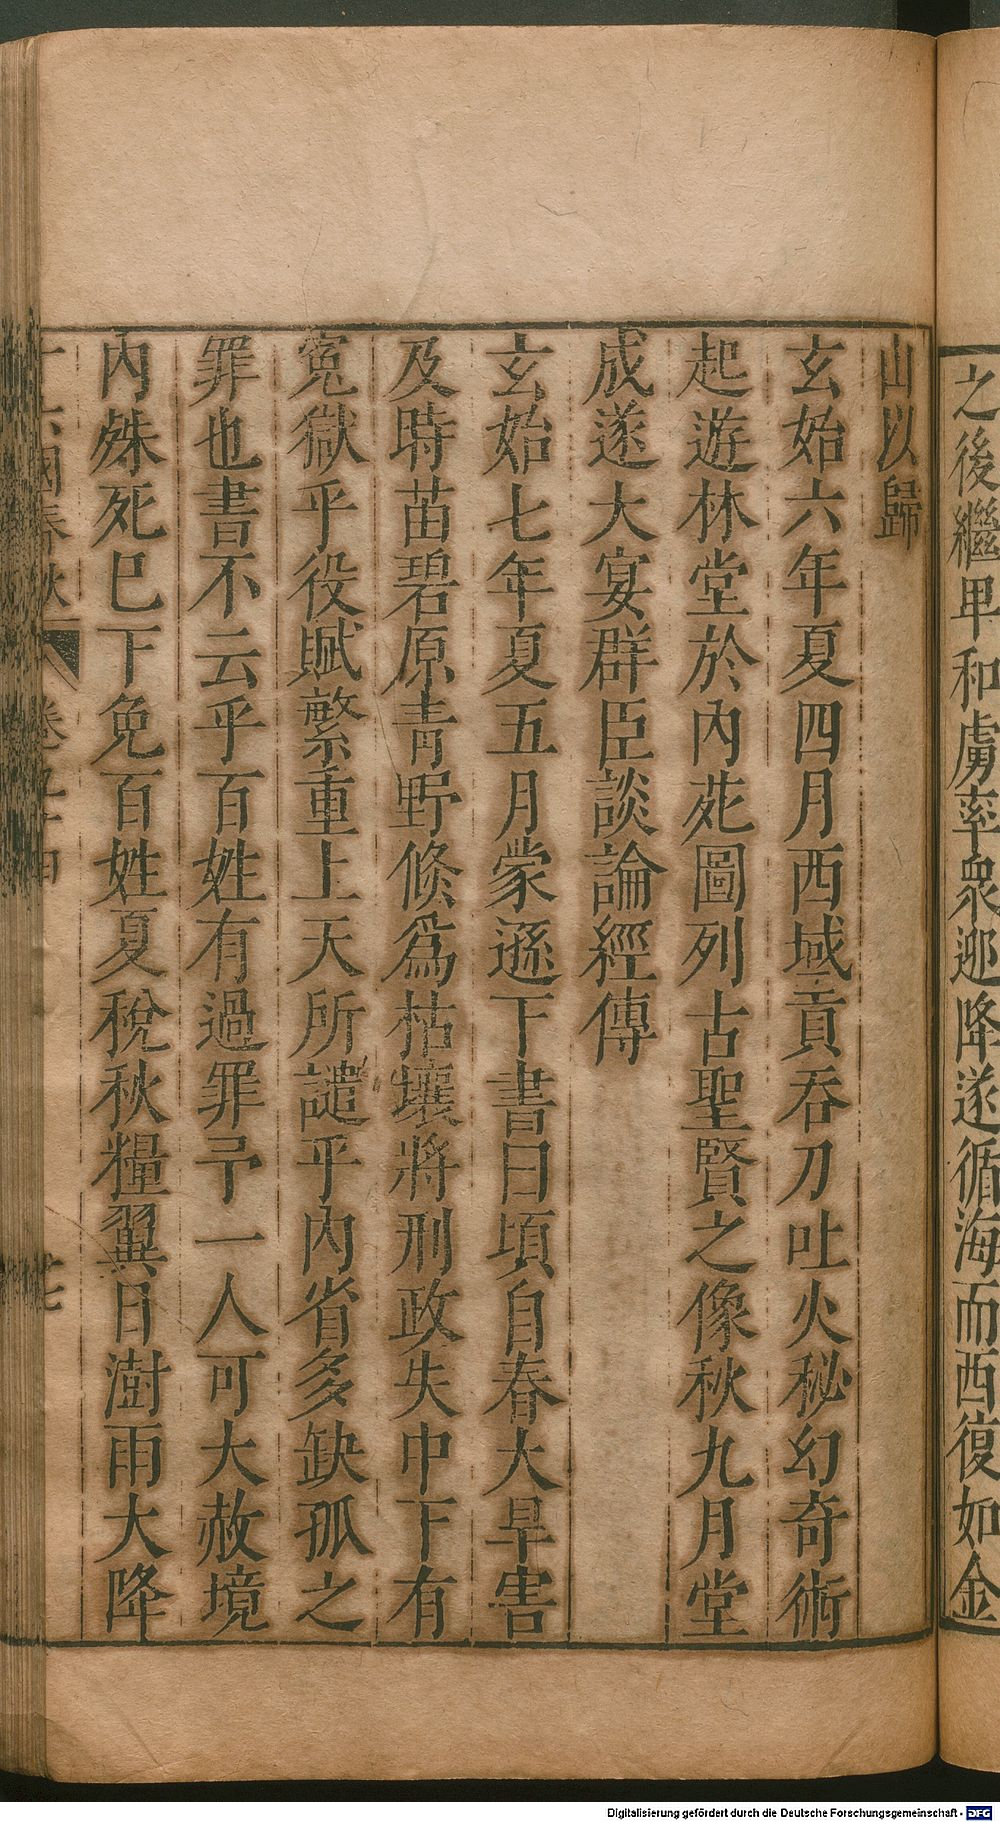 之後繼甲和虜率衆迎降遂循海而西復如金
山以歸
玄始六年夏四月西域貢吞刀吐火秘幻奇術
起遊林堂於內苑圖列古聖賢之像秋九月堂
成遂大宴群臣談論經傳
玄始七年夏五月蒙遜下書曰頃自春大旱害
及時苗碧原青野倏爲枯壤將刑政失中下有
寃獄乎役賦繁重上天所譴乎內省多缺孤之
罪也書不云乎百姓有過罪予一人可大赦境
內殊死巳下免百姓夏稅秋糧翼日澍雨大降
十六國春秋 卷 廿七
Digitalisierung gefördert durch die Deutsche Forschungsgemeinschaft - DFG